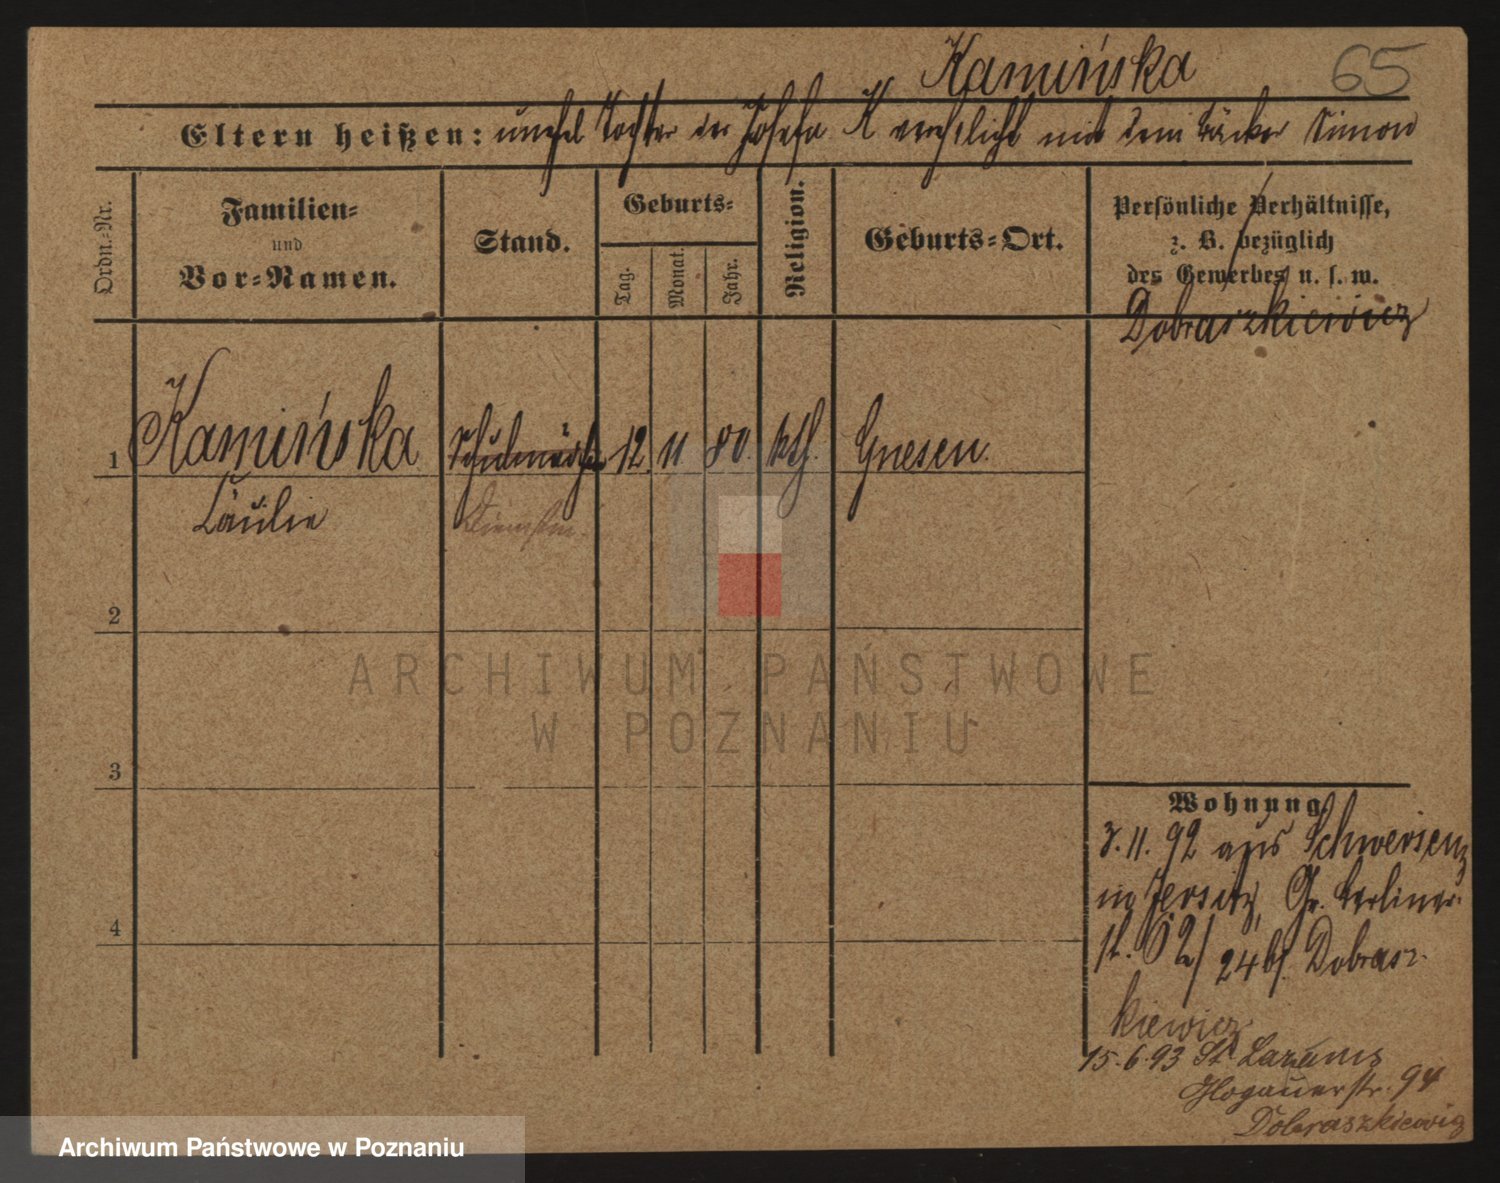 Kamińska 65
Eltern heißen: unehel Tochter der Josefa K verehelicht mit dem Bäcker Simon
Dobraszkiewicz
Ordn.-Nr.
Familien-
und
Vor-Namen.
Stand.
Geburts-
Tag.
Monat.
Jahr.
Religion.
Geburts-Ort.
Persönliche Verhältnisse,
z. B. bezüglich
des Gewerbes u. s. w.
1 Kamińska 12. 11 80. kth. Gnesen.
2
3
4
Wohnung.
3. 11. 92 aus Schwersenz
in Jersitz, Gr. Berliner-
st. 62/ 24 bei Dobrasz-
kiewicz
15. 6. 93 St. Lazarus
Glogauerstr. 94
Dobraszkiewicz
ARCHIWUM PAŃSTWOWE
W POZNANIU
Archiwum Państwowe w Poznaniu